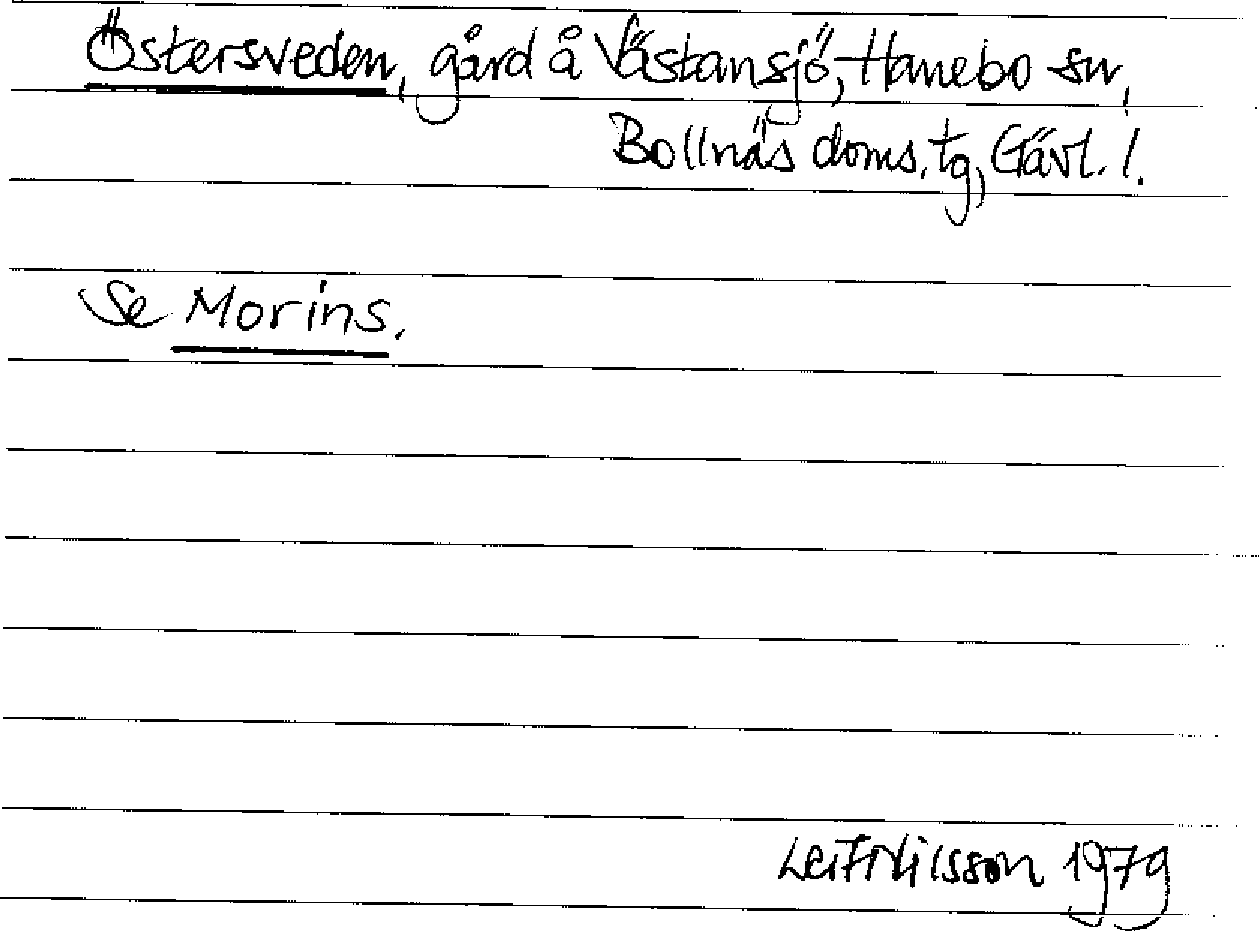 Östersveden, gård å Västansjö, Hanebo sn,
Bollnäs doms. tg, Gävl. l.
Se Morins.
Leif Nilsson 1979